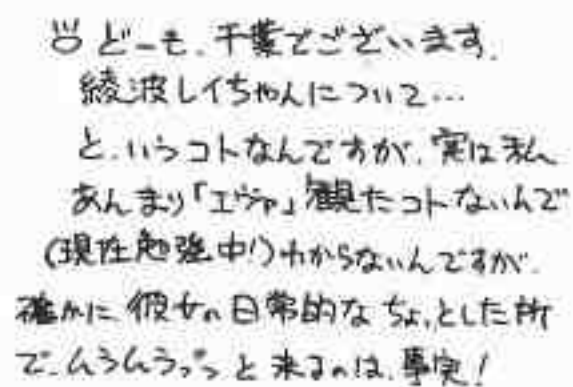 どーも、千葉でございます。
綾波レイちゃんについて…
と、いうコトなんですが、実は私
あんまり「エヴァ」観たコトないんで
(現在勉強中!)わからないんですが、
確かに彼女の日常的なちょっとした所
で、ムラムラっと来るのは、事実!